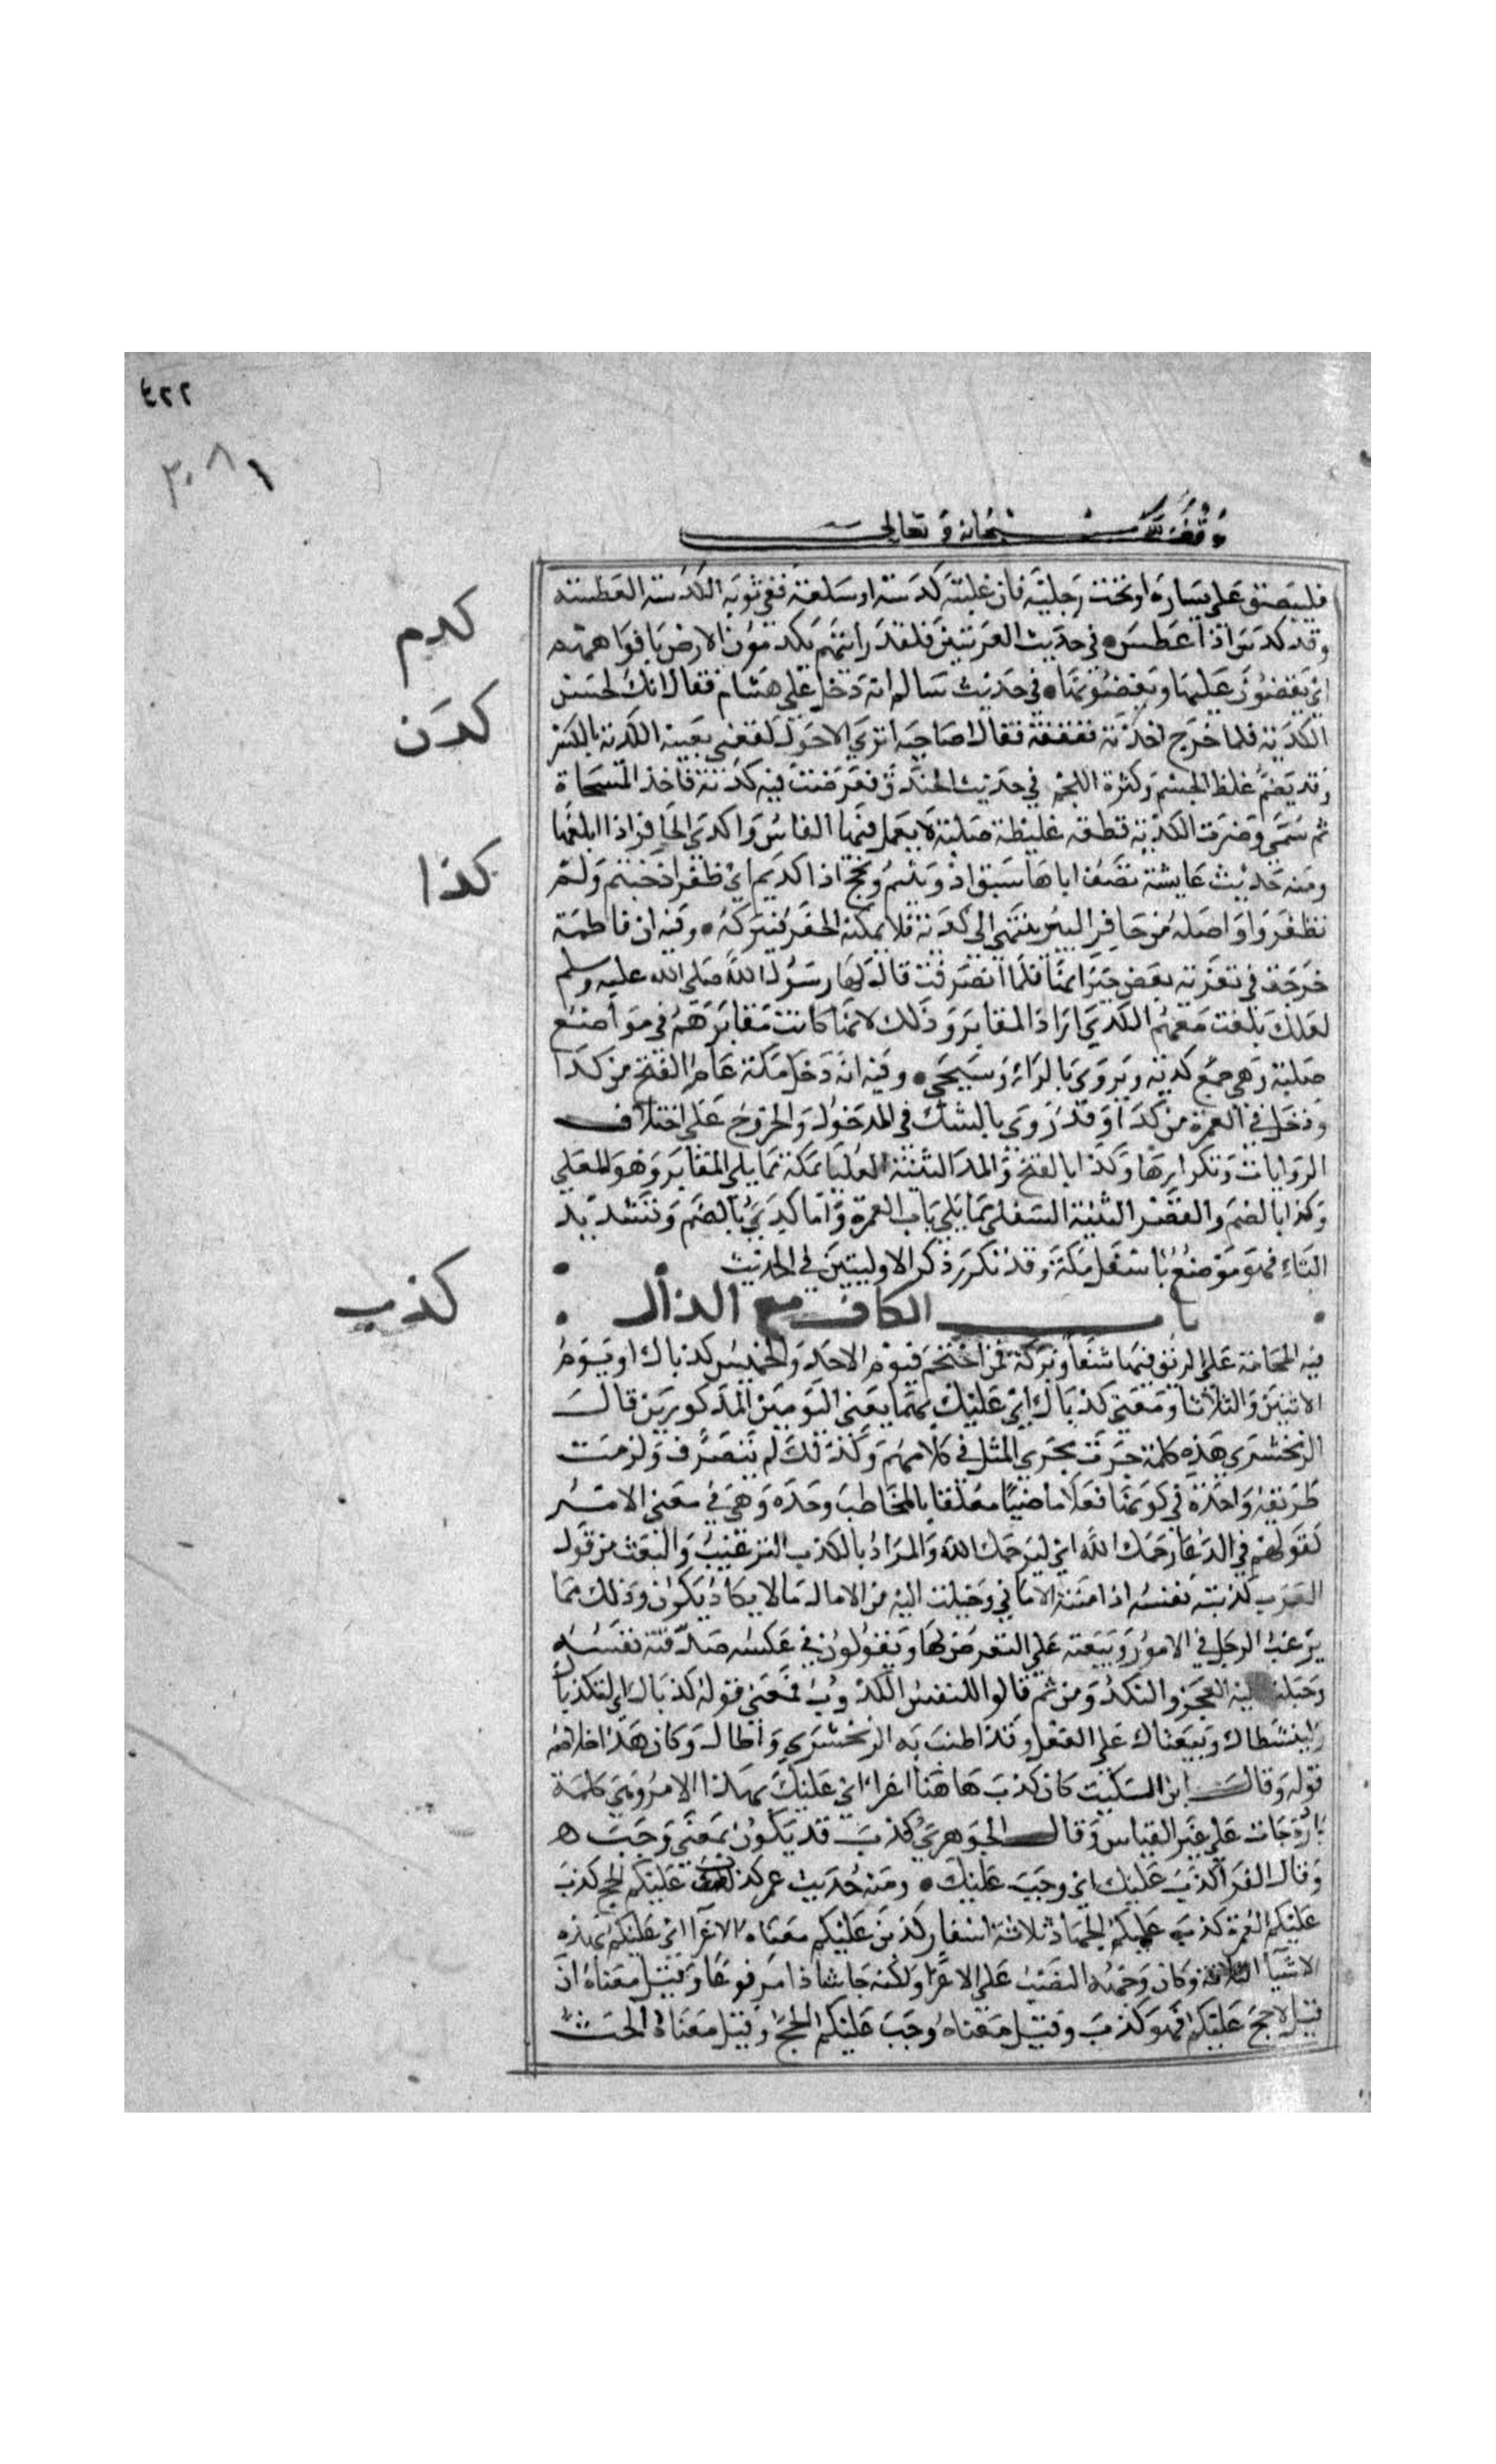 ٤٢٢
٣٠٨١
وقف لله سبحانه وتعالى
فليبصق على يساره او تحت رجليه فان غلبته كدسة او سعلة ففي ثوبه الكدسة العطسة
كدم
وقد كدس اذا عطس • في حديث العرنيين فلقد رايتهم يكدمون الارض بافواههم
اي يقضبون عليها ويعضونها • في حديث سالم انه دخل على هشام فقال انك لحسن
كدن
الكدنة فلما خرج اخذته قفقفة فقال لصاحبه اترى الاحول لقعني بعينه الكدنة بالكسر
وقد يضم غلظ الجسم وكثرة اللحم في حديث الخندق فعرضت فيه كدية فاخذ المسحاة
ثم سمى وضرب الكدية قطعة غليظة صلبة لا يعمل فيها الفاس واكدى الحافر اذا بلغها
كدا
ومنه حديث عايشة تصف اباها سبق اذ ونيتم ونجح اذ اكديتم اي ظفر اذ خبتم ولم
تظفروا واصله من حافر البير ينتهي الى كدية فلا يمكنه الحفر فيتركه • وفيه ان فاطمة
خرجت في تعزية بعض جيرانها فلما انصرفت قال لها رسول الله صلى الله عليه وسلم
لعلك بلغت معهم الكدى اراد المقابر وذلك لانها كانت مقابرهم في مواضع
صلبة وهي جمع كدية ويروى بالراء وسيجي • وفيه انه دخل مكة عام الفتح من كدا
ودخل في العمرة من كدا وقد روي بالشك في الدخول والخروج على اختلاف
الروايات وتكرارها وكدا بالفتح والمد الثنية العليا بمكة مما يلي المقابر وهو المعلى
وكدا بالضم والقصر الثنية السفلى مما يلي باب العمرة واما كدي بالضم وتشديد
الياء فهو موضع باسفل مكة وقد تكرر ذكر الاوليين في الحديث
باب الكاف مع الذال
كذب
فيه الحجامة على الريق فيها شفا وبركة فمن احتجم فيوم الاحد والخميس كذباك او يوم
الاثنين والثلاثا ومعنى كذباك اي عليك بهما يعني اليومين المذكورين قال
الزمخشري هذه كلمة جرت مجرى المثل في كلامهم ولذلك لم تتصرف ولزمت
طريقة واحدة في كونها فعلا ماضيا معلقا بالمخاطب وحده وهي في معنى الامر
كقولهم في الدعا رحمك الله اي ليرحمك الله والمراد بالكذب الترغيب والبعث من قول
العرب كذبته نفسه اذا منته الاماني وخيلت اليه من الامال ما لا يكاد يكون وذلك مما
يرغب الرجل في الامور ويبعثه على التعرض لها ويقولون في عكسه صدقته نفسه
وخيلت اليه العجز والنكد ومن ثم قالوا للنفس الكذوب فمعنى قوله كذباك اي ليكذباك
ولينشطاك ويبعثاك على الفعل وقد اطنب به الزمخشري واطال وكان هذا خلاصة
قوله وقال ابن السكيت كان كذب هاهنا اغراء اي عليك بهذا الامر وهي كلمة
نادرة جات على غير القياس وقال الجوهري كذب قد يكون بمعنى وجب ه
وقال الفرا كذب عليك اي وجب عليك • ومنه حديث عمر كذب عليكم الحج كذب
عليكم العمرة كذب عليكم الجهاد ثلاثة اسفار كذبن عليكم معناه الاغرا اي عليكم بهذه
الاشيا الثلاثة وكان وجهه النصب على الاغرا ولكنه جا شاذا مرفوعا وقيل معناه ان
قيل لا حج عليكم فهو كذب وقيل معناه وجب عليكم الحج وقيل معناه الحث